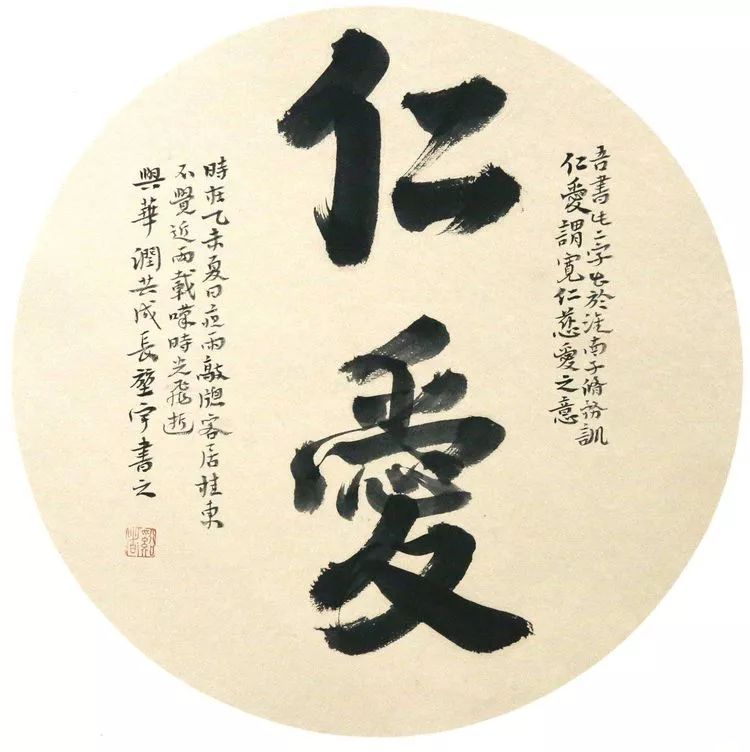 吾書此二字出於淮南子脩務訓
仁愛謂寬仁慈愛之意
仁愛
時在乙未夏日夜雨敲牕客居桂東
不覺近兩載嘆時光飛逝
與華潤共成長堃宇書之